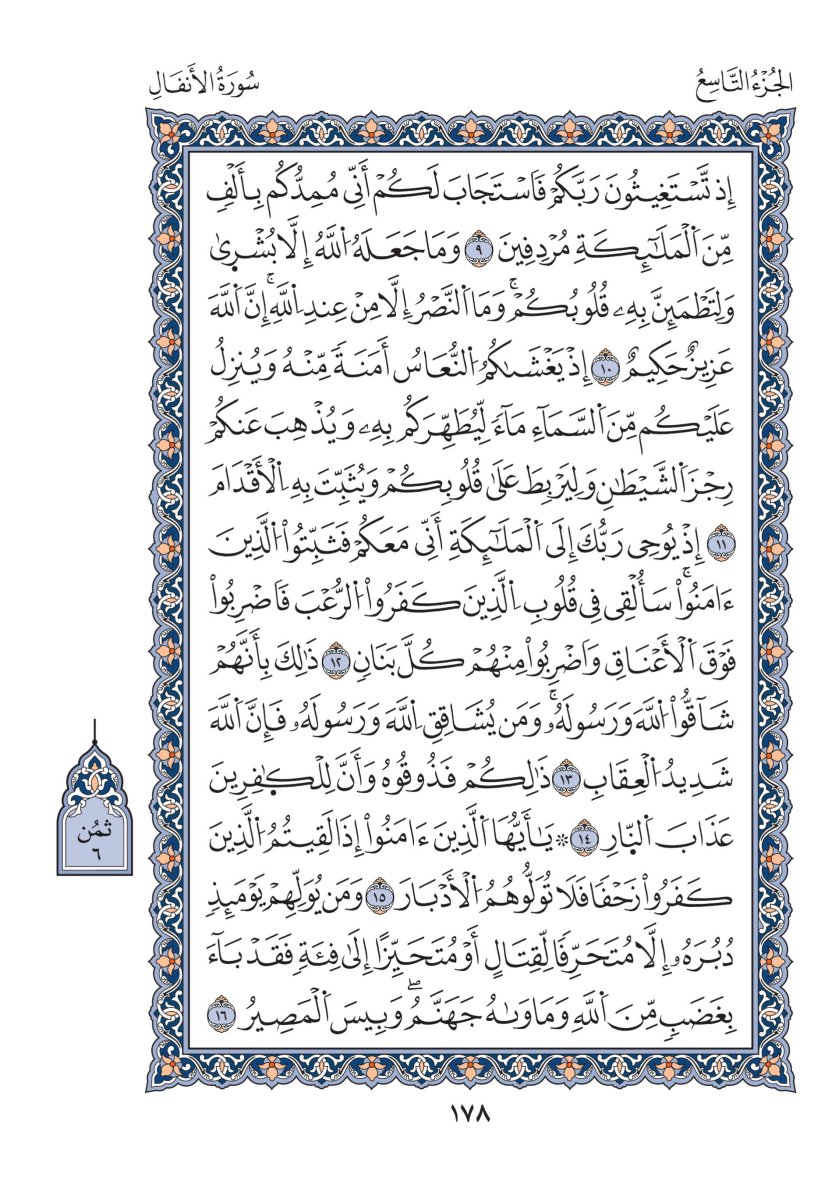 الجُزْءُ التَّاسِعُ
سُورَةُ الأَنفَالِ
إِذ تَّسۡتَغِيثُونَ رَبَّكُمۡ فَٱسۡتَجَابَ لَكُمۡ أَنِّي مُمِدُّكُم بِأَلۡفٖ
مِّنَ ٱلۡمَلَٰٓئِكَةِ مُرۡدِفِينَ ٩ وَمَا جَعَلَهُ ٱللَّهُ إِلَّا بُشۡرىٰ
وَلِتَطۡمَئِنَّ بِهِۦ قُلُوبُكُمۡۚ وَمَا ٱلنَّصۡرُ إِلَّا مِنۡ عِندِ ٱللَّهِۚ إِنَّ ٱللَّهَ
عَزِيزٌ حَكِيمٌ ١٠ إِذۡ يَغۡشَىٰكُمُ ٱلنُّعَاسُ أَمَنَةٗ مِّنۡهُ وَيُنزِلُ
عَلَيۡكُم مِّنَ ٱلسَّمَآءِ مَآءٗ لِّيُطَهِّرَكُم بِهِۦ وَيُذۡهِبَ عَنكُمۡ
رِجۡزَ ٱلشَّيۡطَٰنِ وَلِيَرۡبِطَ عَلَىٰ قُلُوبِكُمۡ وَيُثَبِّتَ بِهِ ٱلۡأَقۡدَامَ
١١ إِذۡ يُوحِي رَبُّكَ إِلَى ٱلۡمَلَٰٓئِكَةِ أَنِّي مَعَكُمۡ فَثَبِّتُواْ ٱلَّذِينَ
ءَامَنُواْۚ سَأُلۡقِي فِي قُلُوبِ ٱلَّذِينَ كَفَرُواْ ٱلرُّعۡبَ فَٱضۡرِبُواْ
فَوۡقَ ٱلۡأَعۡنَاقِ وَٱضۡرِبُواْ مِنۡهُمۡ كُلَّ بَنَانٖ ١٢ ذَٰلِكَ بِأَنَّهُمۡ
شَآقُّواْ ٱللَّهَ وَرَسُولَهُۥۚ وَمَن يُشَاقِقِ ٱللَّهَ وَرَسُولَهُۥ فَإِنَّ ٱللَّهَ
شَدِيدُ ٱلۡعِقَابِ ١٣ ذَٰلِكُمۡ فَذُوقُوهُ وَأَنَّ لِلۡكٰفِرِينَ
عَذَابَ ٱلنّارِ ١٤ ۞يَٰٓأَيُّهَا ٱلَّذِينَ ءَامَنُوٓاْ إِذَا لَقِيتُمُ ٱلَّذِينَ
كَفَرُواْ زَحۡفٗا فَلَا تُوَلُّوهُمُ ٱلۡأَدۡبَارَ ١٥ وَمَن يُوَلِّهِمۡ يَوۡمَئِذٖ
دُبُرَهُۥٓ إِلَّا مُتَحَرِّفٗا لِّقِتَالٍ أَوۡ مُتَحَيِّزًا إِلَىٰ فِئَةٖ فَقَدۡ بَآءَ
بِغَضَبٖ مِّنَ ٱللَّهِ وَمَاوَىٰهُ جَهَنَّمُۖ وَبِيسَ ٱلۡمَصِيرُ ١٦
ثمُن
٦
١٧٨